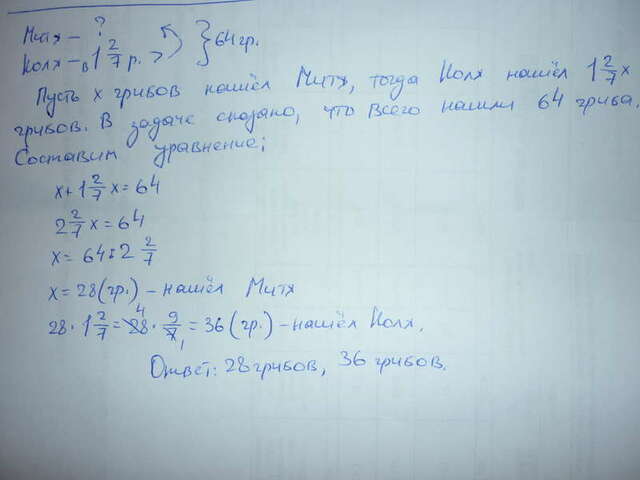 Митя - ?
Коля - в 1 2/7 р. > } 64 гр.
Пусть x грибов нашёл Митя, тогда Коля нашёл 1 2/7 x
грибов. В задаче сказано, что всего нашли 64 гриба.
Составим уравнение:
x + 1 2/7 x = 64
2 2/7 x = 64
x = 64 : 2 2/7
x = 28 (гр.) - нашёл Митя
28 · 1 2/7 = 28 4 · 9/7 1 = 36 (гр.) - нашёл Коля.
Ответ: 28 грибов, 36 грибов.